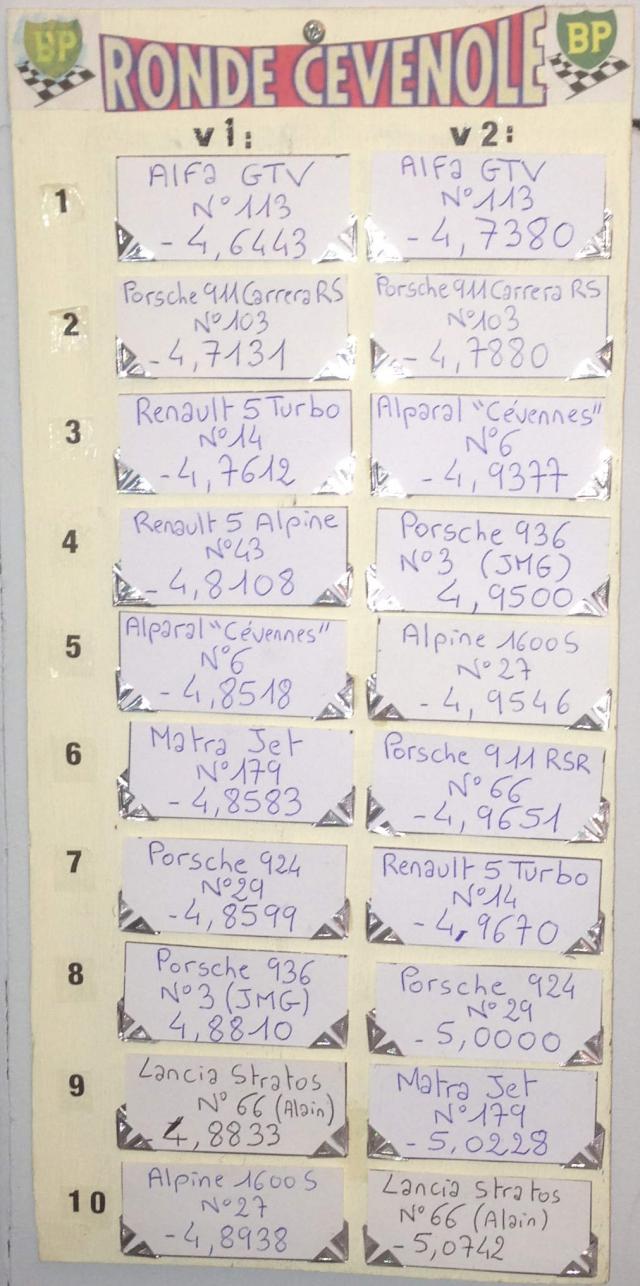 BP RONDE CEVENOLE BP
v1: v2:
1
Alfa GTV
N°113
- 4,6443
Alfa GTV
N°113
- 4,7380
2
Porsche 911 Carrera RS
N°103
- 4,7131
Porsche 911 Carrera RS
N°103
- 4,7880
3
Renault 5 Turbo
N°14
- 4,7612
Alparal "Cévennes"
N°6
- 4,9377
4
Renault 5 Alpine
N°43
- 4,8108
Porsche 936
N°3 (JMG)
4,9500
5
Alparal "Cévennes"
N°6
- 4,8518
Alpine 1600 S
N°27
- 4,9546
6
Matra Jet
N°179
- 4,8583
Porsche 911 RSR
N°66
- 4,9651
7
Porsche 924
N°29
- 4,8599
Renault 5 Turbo
N°14
- 4,9670
8
Porsche 936
N°3 (JMG)
4,8810
Porsche 924
N°29
- 5,0000
9
Lancia Stratos
N°66 (Alain)
- 4,8833
Matra Jet
N°179
- 5,0228
10
Alpine 1600 S
N°27
- 4,8938
Lancia Stratos
N°66 (Alain)
- 5,0742